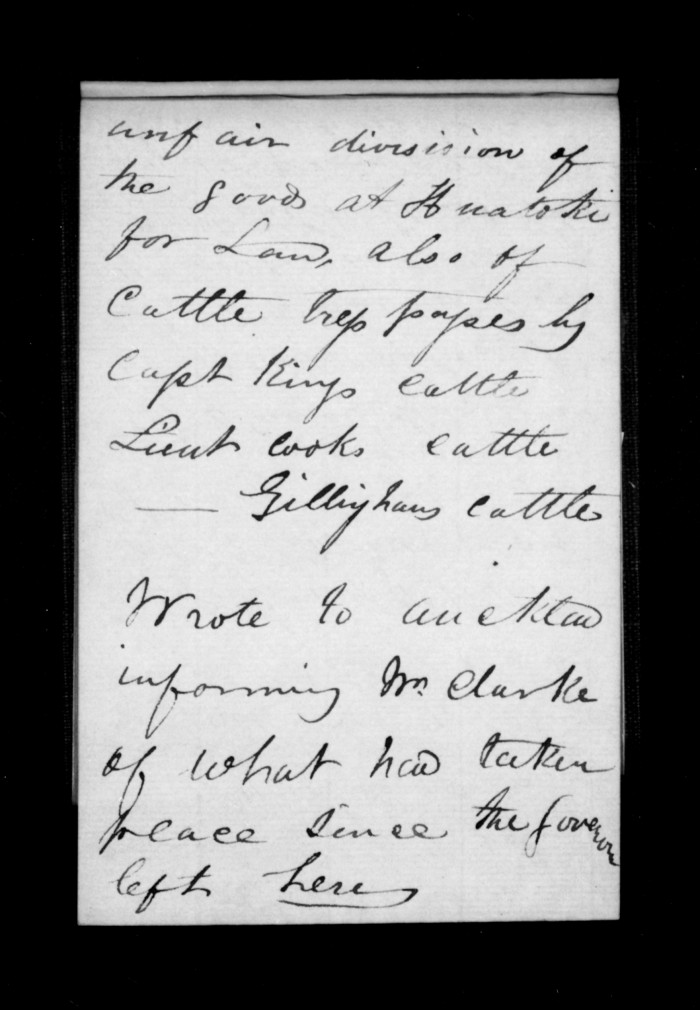 unfair division of
the goods at Huatoki
for Land, also of
Cattle trespasses by
Capt Kings cattle
Lieut Cooks cattle
— Gillinghams Cattle
Wrote to Aucklad
informing Mr. Clarke
of what had taken
pleace since the Governor
left here